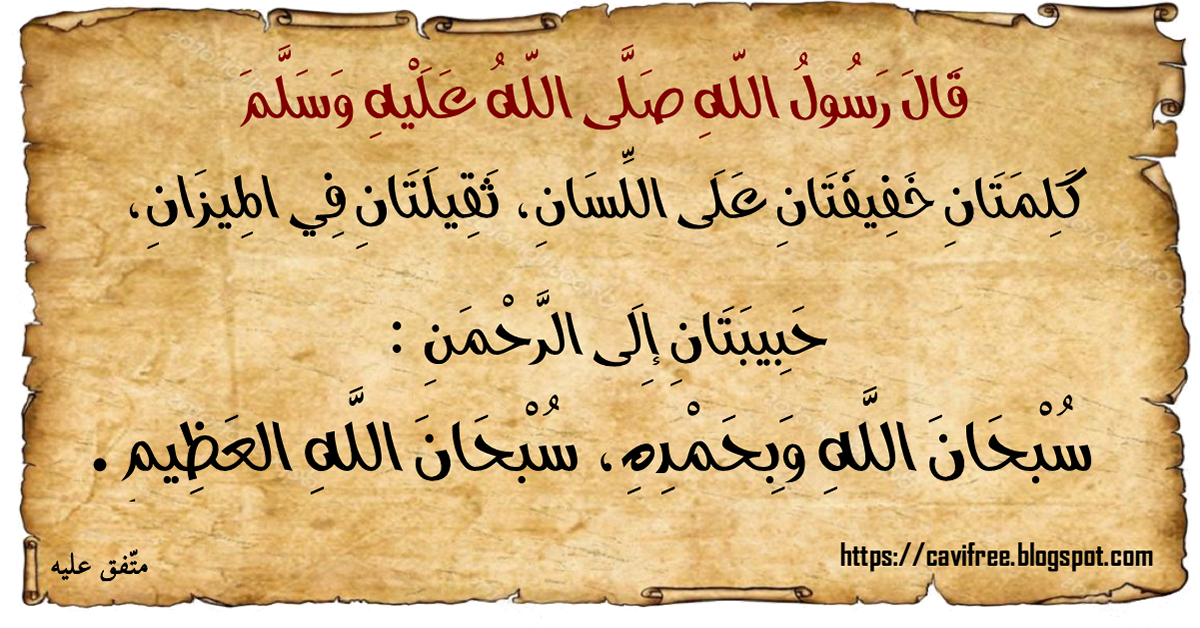 قَالَ رَسُولُ اللّهِ صَلَّى اللّهُ عَلَيْهِ وَسَلَّمَ
كَلِمَتَانِ خَفِيفَتَانِ عَلَى اللِّسَانِ، ثَقِيلَتَانِ فِي المِيزَانِ،
حَبِيبَتَانِ إِلَى الرَّحْمَنِ :
سُبْحَانَ اللَّهِ وَبِحَمْدِهِ، سُبْحَانَ اللَّهِ العَظِيمِ .
متّفق عليه
https://cavifree.blogspot.com